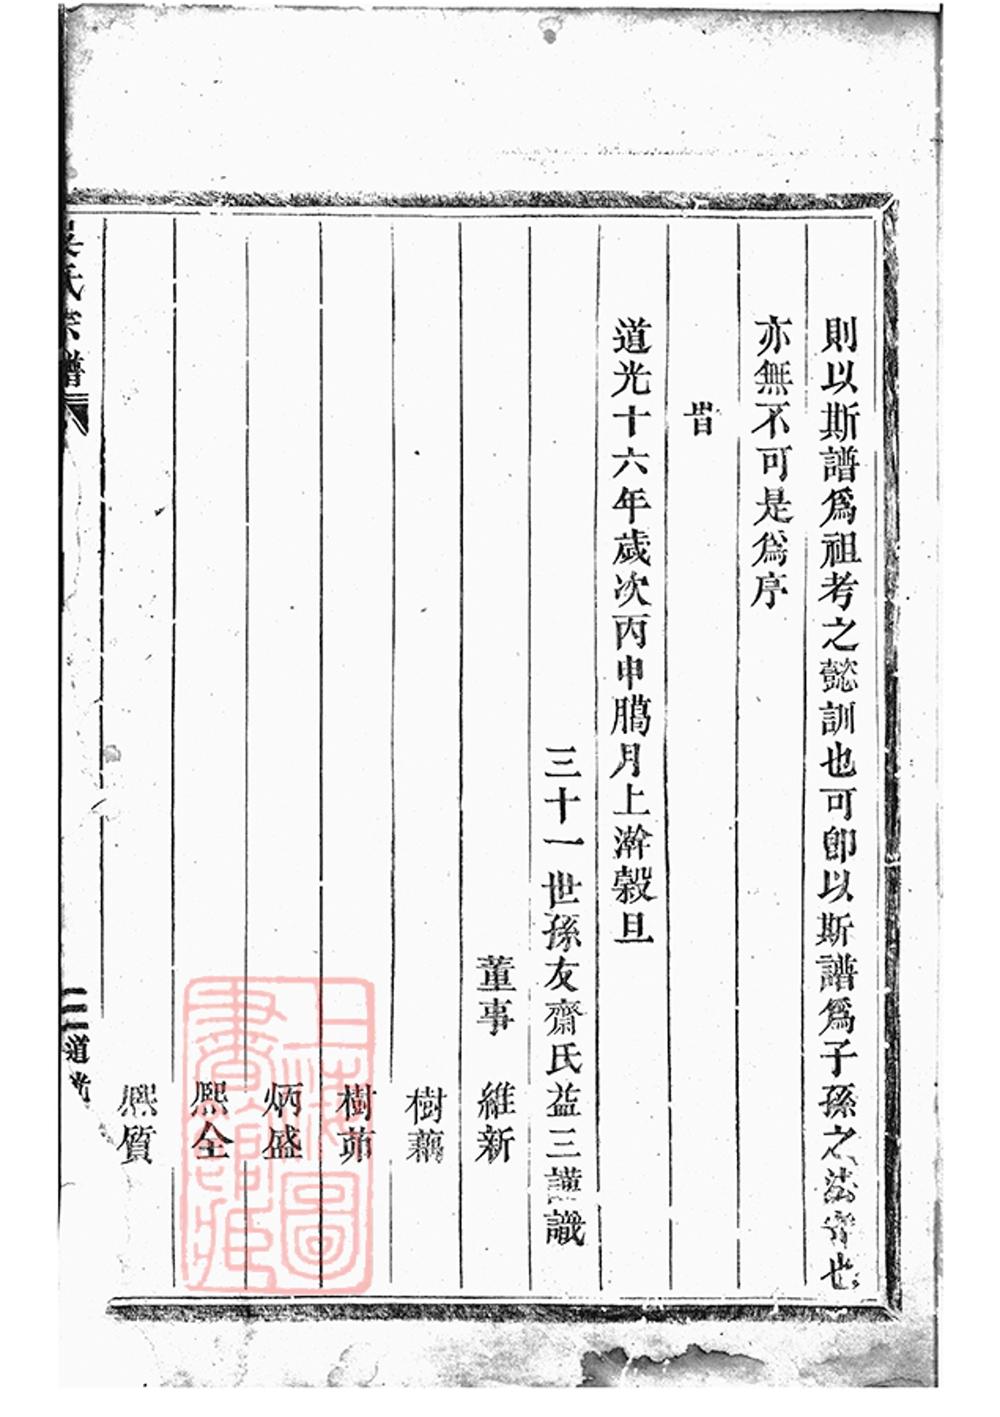 則以斯譜爲祖考之懿訓也可卽以斯譜爲子孫之法守也
亦無不可是爲序
旹
道光十六年歲次丙申臈月上澣榖旦
三十一世孫友齋氏益三謹識
董事 維新
樹藕
樹茆
炳盛
熙全
熙質
吳氏宗譜
道光
上海圖
書館藏